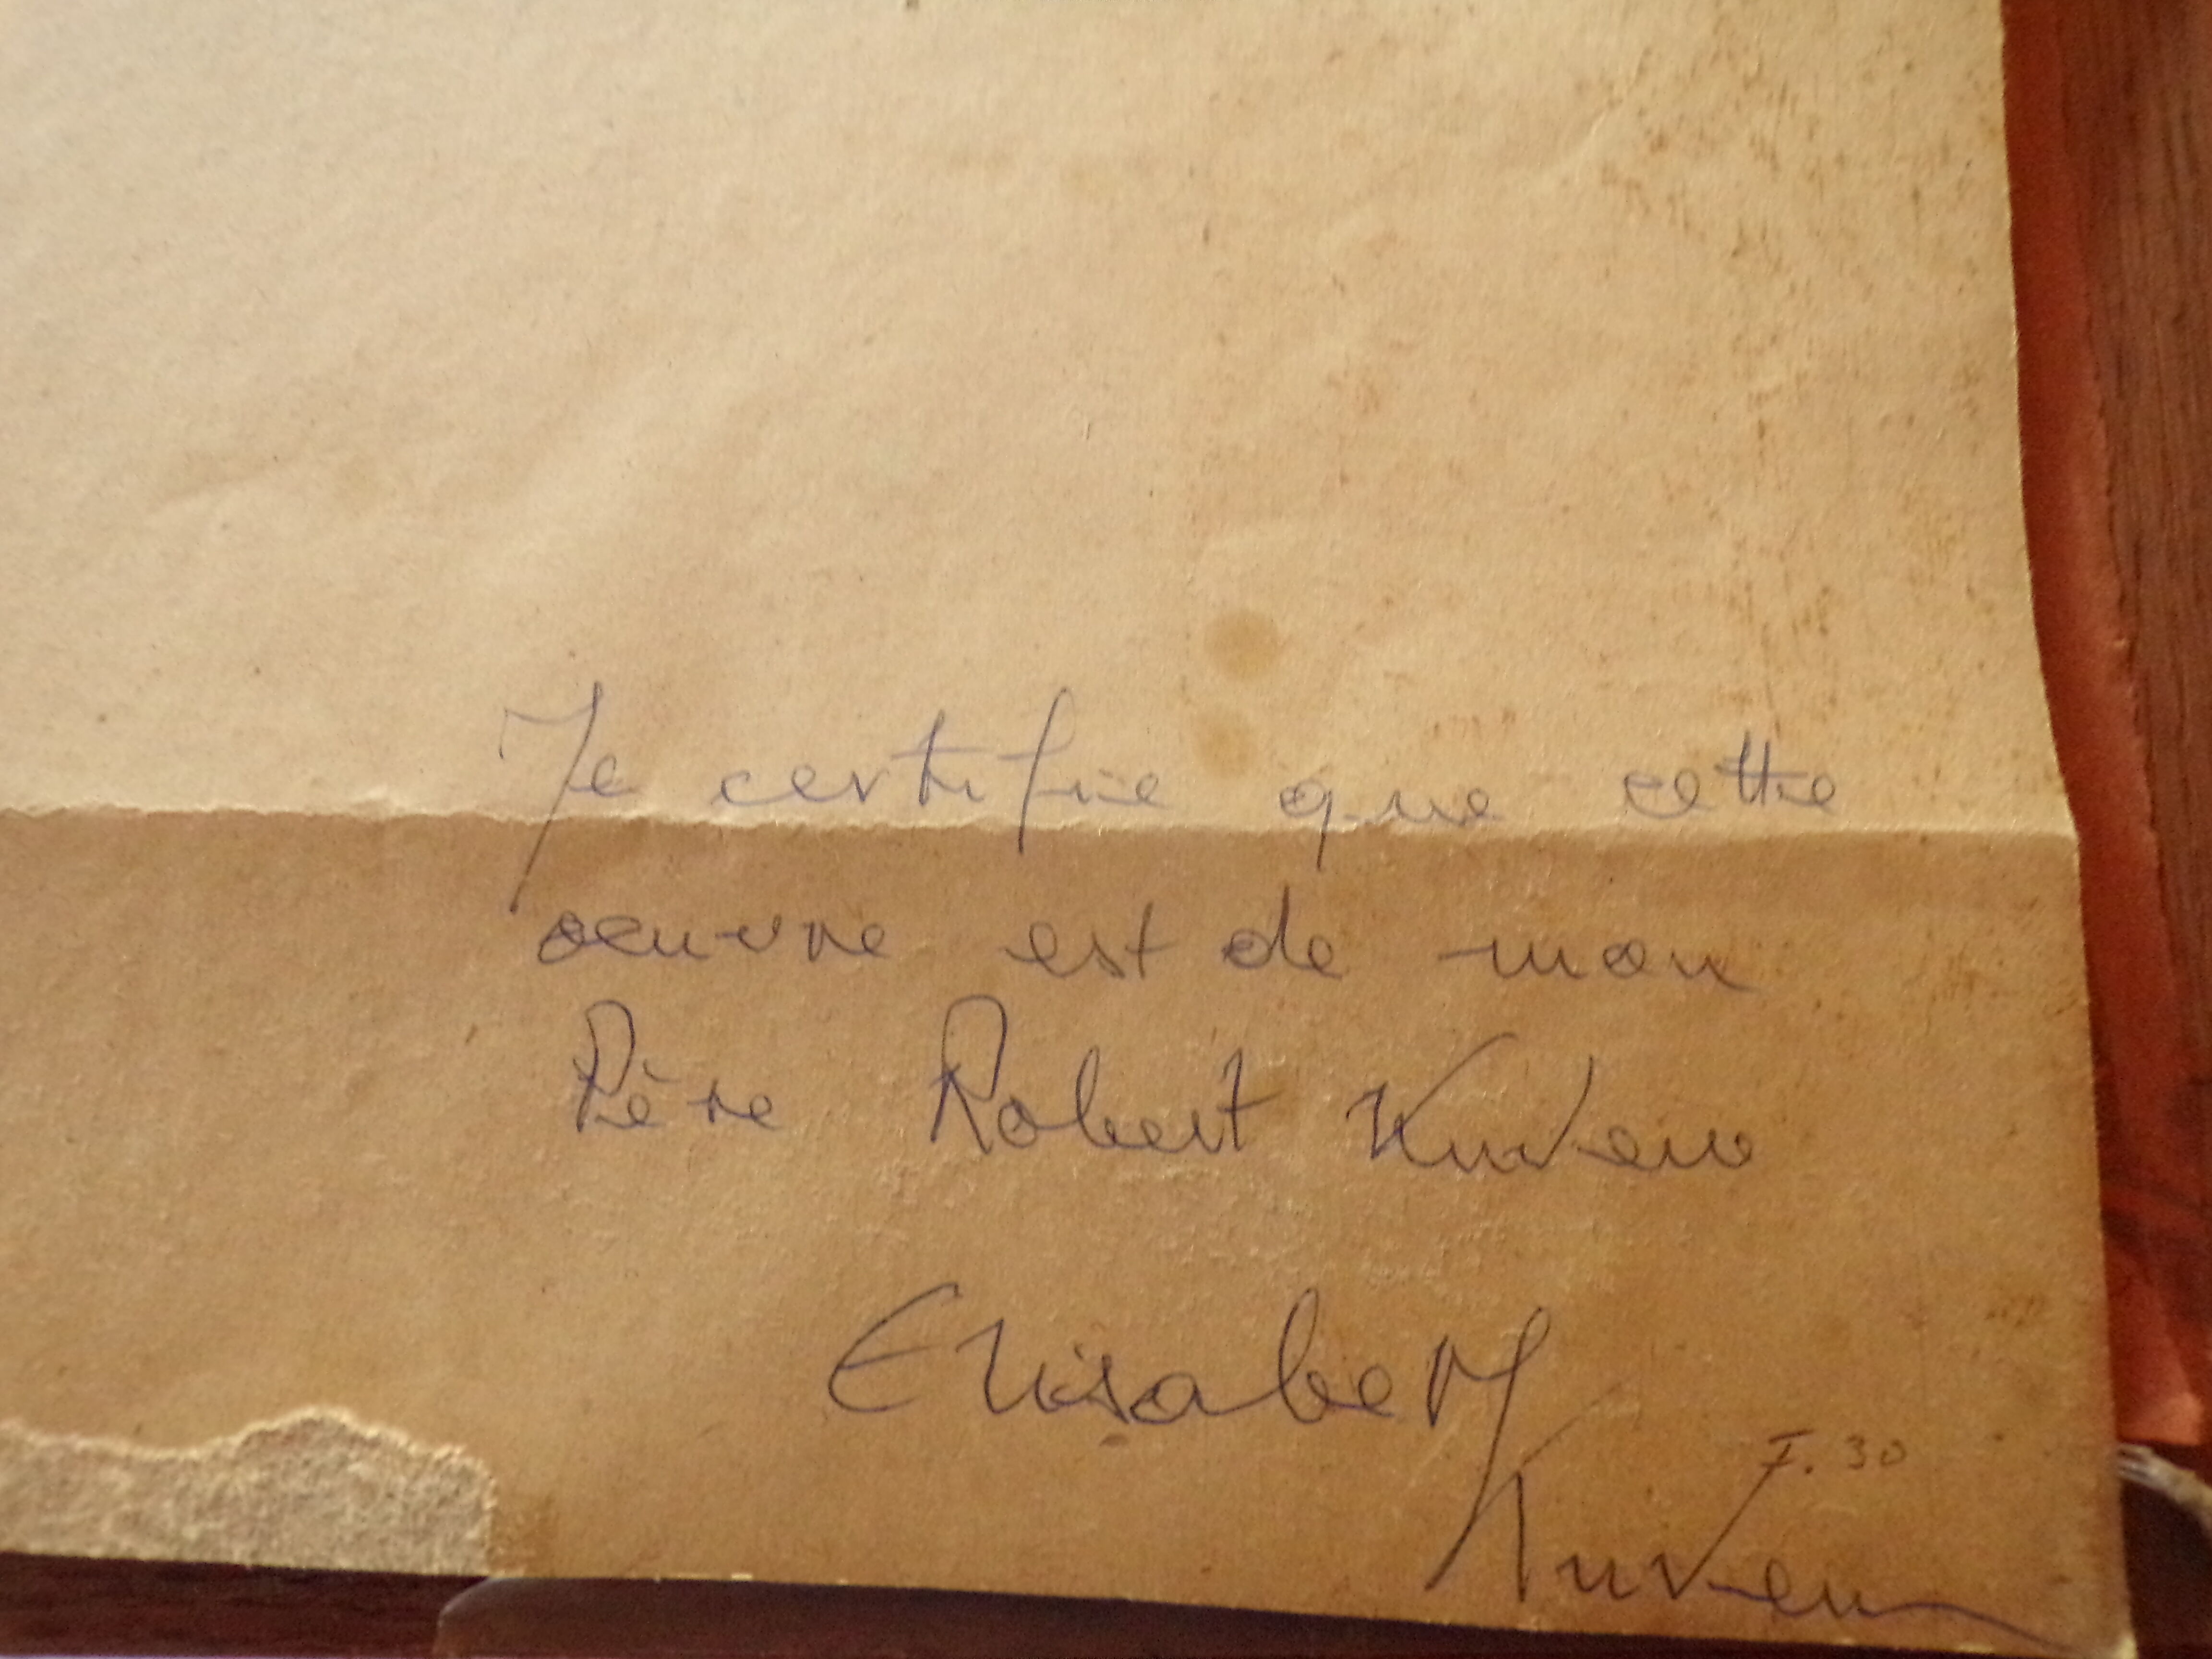 Je certifie que cette
oeuvre est de mon
Père Robert Kuven
Elisabeth
F. 30
Kuven